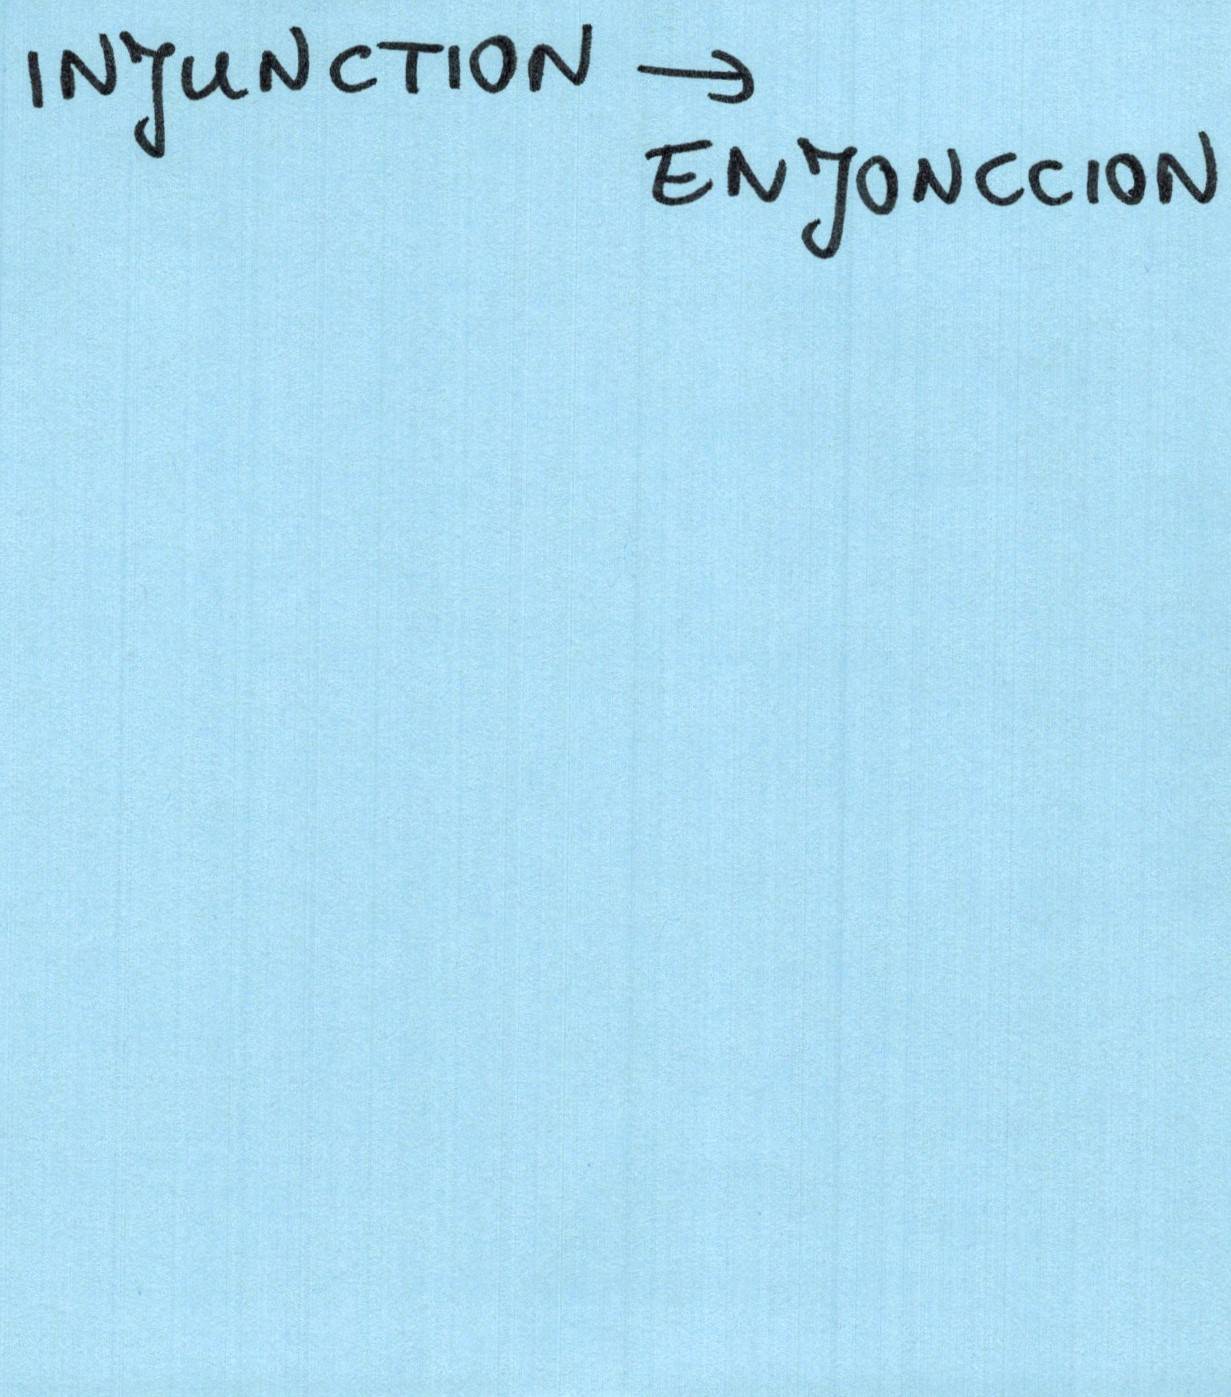 INJUNCTION →
ENJONCCION